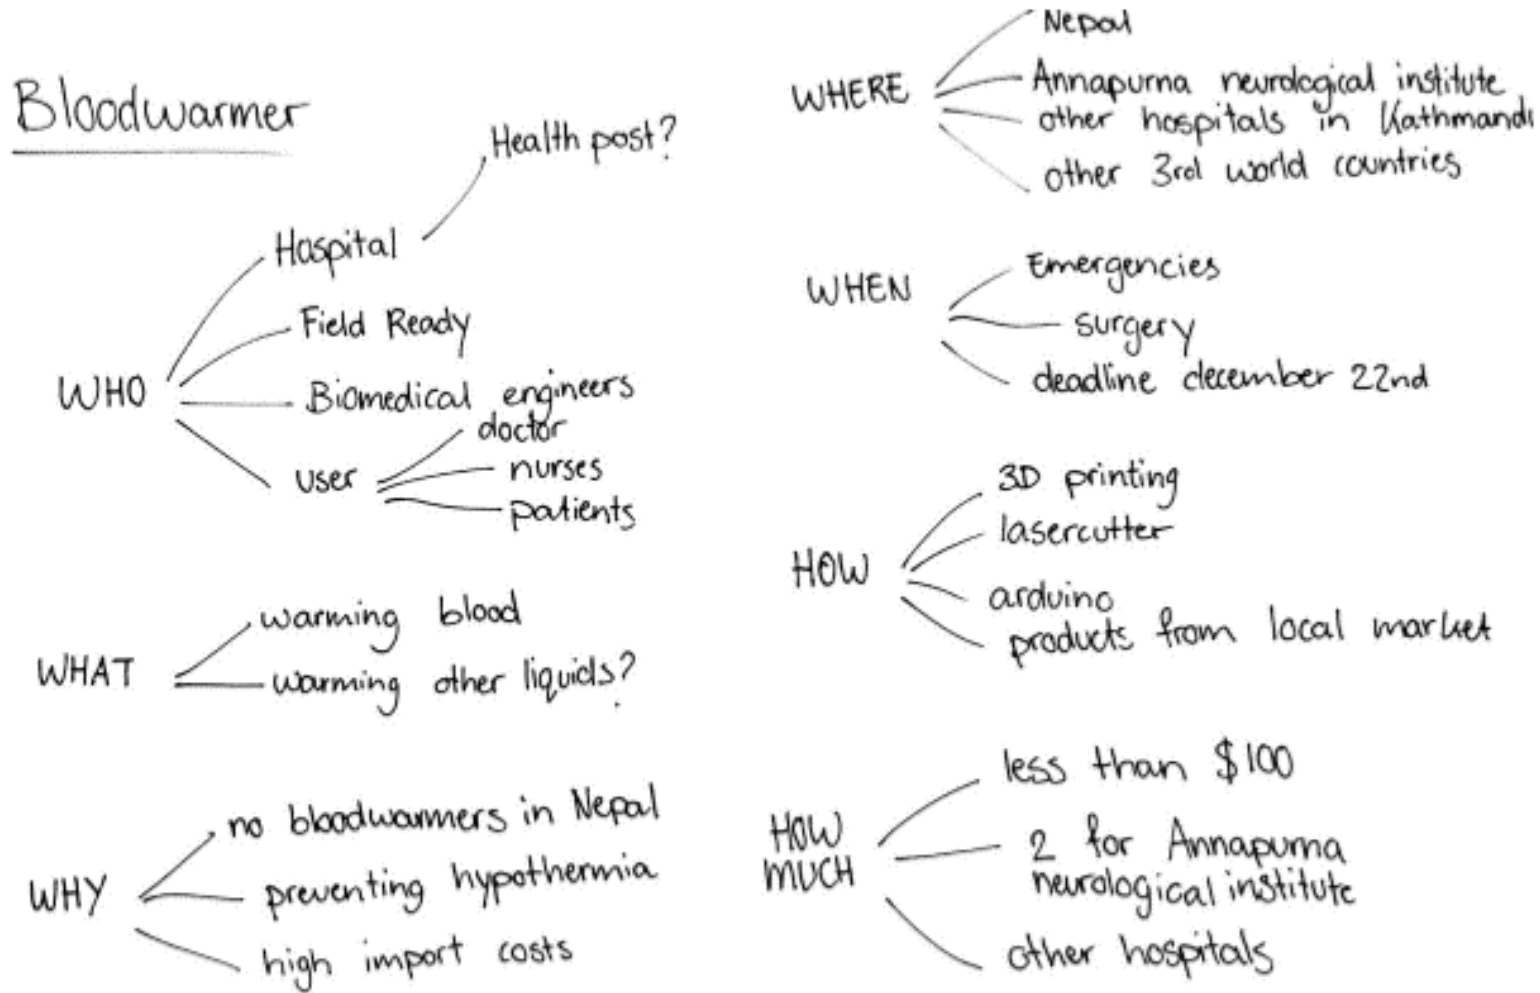 Bloodwarmer
WHO
Hospital
Health post?
Field Ready
Biomedical engineers
user
doctor
nurses
patients
WHAT
warming blood
warming other liquids?
WHY
no bloodwarmers in Nepal
preventing hypothermia
high import costs
WHERE
Nepal
Annapurna neurological institute
other hospitals in Kathmandu
other 3rd world countries
WHEN
Emergencies
surgery
deadline december 22nd
HOW
3D printing
lasercutter
arduino
products from local market
HOW
MUCH
less than $100
2 for Annapurna
neurological institute
other hospitals